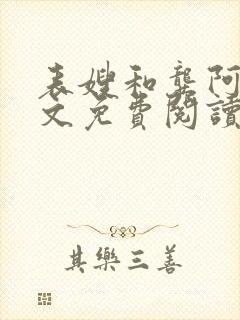 表嫂和龔阿
文免費閱讀
其樂三善